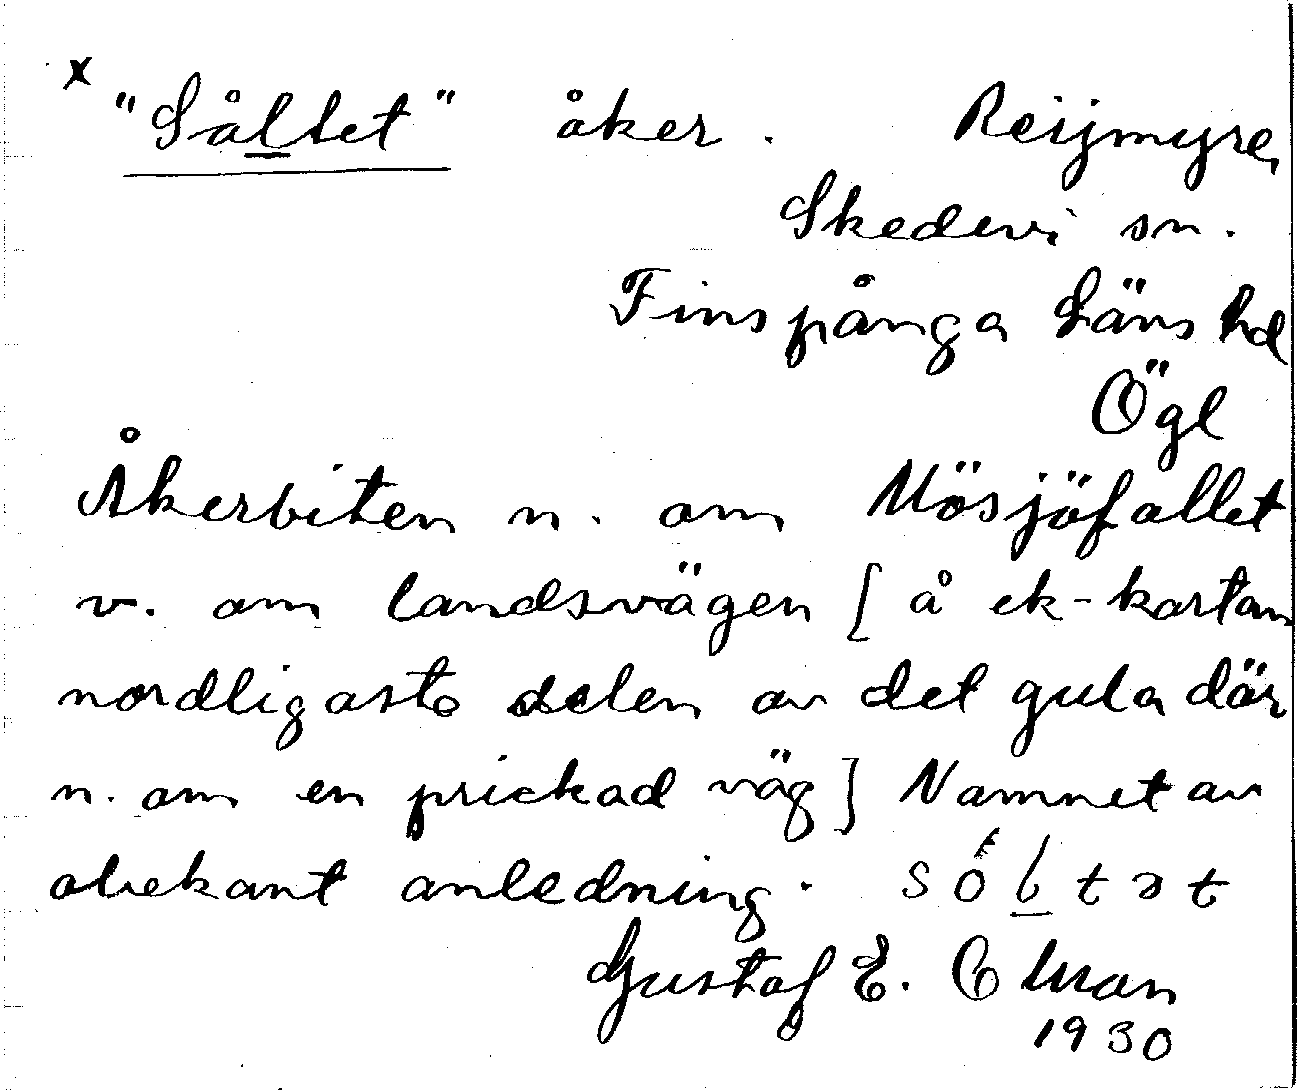 x "Såltet" åker. Reijmyre,
Skedevi sn.
Finspånga Läns hd
Ögl
Åkerbiten n. om Mösjöfallet
v. om landsvägen [å ek-kartan
nordligaste delen av det gula där
n. om en prickad väg] Namnet av
obekant anledning.
Gustaf E.
1930